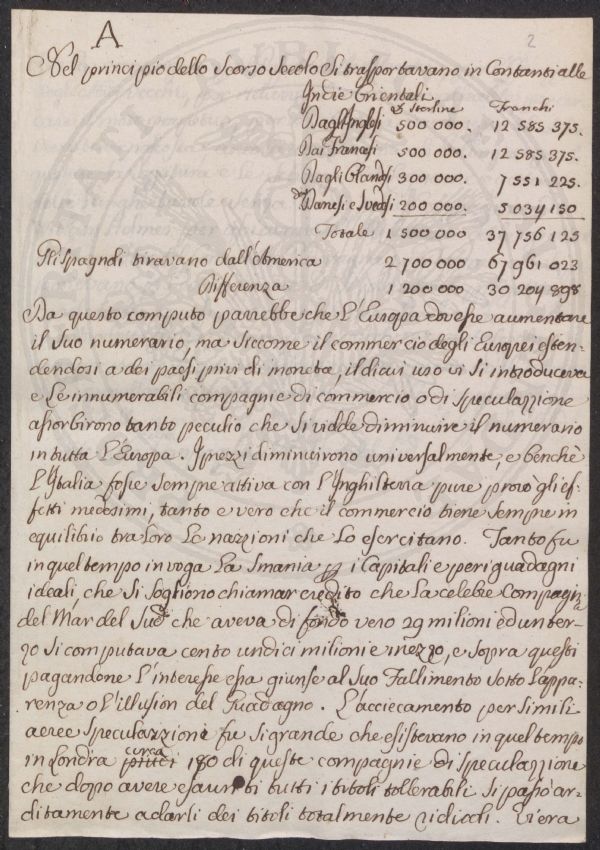 A
2
Nel principio dello scorso secolo si trasportavano in Contanti alle
Indie Orientali
Sterline Franchi
Dagl'Inglesi 500 000. 12 585 375.
Dai Francesi 500 000. 12 585 375.
Dagli Olandesi 300 000. 7 551 225.
Danesi e Svedesi 200 000. 5 034 150
Totale 1 500 000 37 756 125
Gli Spagnoli tiravano dall'America 2 700 000 67 961 023
Differenza 1 200 000 30 204 898
Da questo computo parrebbe che l'Europa dovesse aumentare
il suo numerario, ma siccome il commercio degli Europei esten-
dendosi a dei paesi privi di moneta, il di cui uso vi si introduceva
e le innumerabili compagnie di commercio o di speculazzione
assorbirono tanto peculio che si vidde diminuire il numerario
in tutta l'Europa. I prezzi diminuirono universalmente, e benchè
l'Italia fosse sempre attiva con l'Inghilterra pure provo gli ef-
fetti medesimi, tanto e vero che il commercio tiene sempre in
equilibrio tra loro le nazzioni che lo esercitano. Tanto fu
in quel tempo in voga la smania i Capitali e per i guadagni
ideali, che si sogliono chiamar credito che la celebre Compagnia
del Mar del Sud che aveva di fondo vero 29 milioni ed un ter-
zo si computava cento undici milioni e mezzo, e sopra questi
pagandone l'interesse essa giunse al suo fallimento sotto l'appa-
renza o l'illusion del Guadagno. L'acciecamento per simili
aeree speculazzioni fu si grande che esistevano in quel tempo
in Londra circa 180 di queste compagnie di speculazzione
che dopo avere esauriti tutti i titoli tollerabili si passò ar-
ditamente a darli dei titoli totalmente ridicoli. Vi era